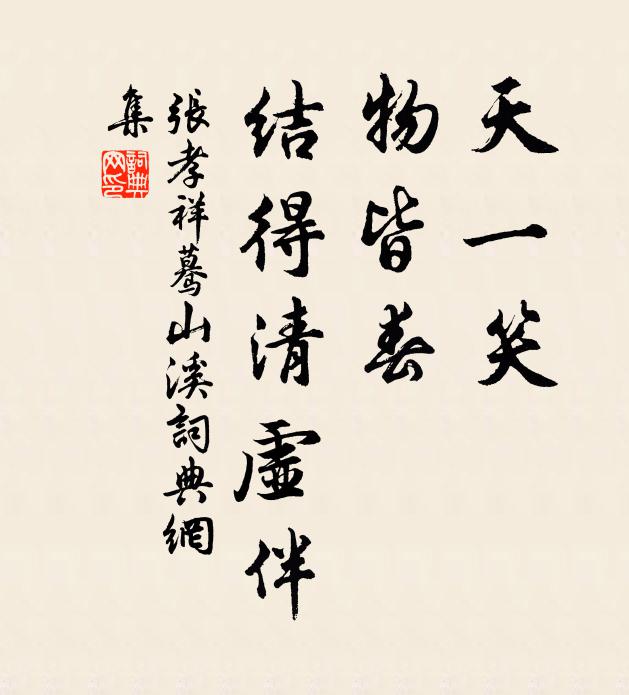 天一笑
物皆春
結得清虛伴
張孝祥驀山溪詞典網
集
詞典網印